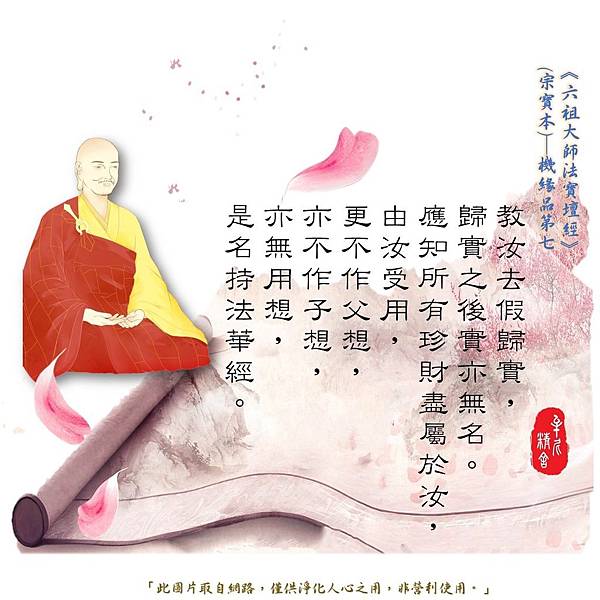 《六祖大師法寶壇經》
(宗寶本)—機緣品第七
教汝去假歸實，
歸實之後實亦無名。
應知所有珍財盡屬於汝，
由汝受用，
更不作父想，
亦不作子想，
亦無用想，
是名持法華經。
精舍
「此圖片取自網路，僅供淨化人心之用，非營利使用。」